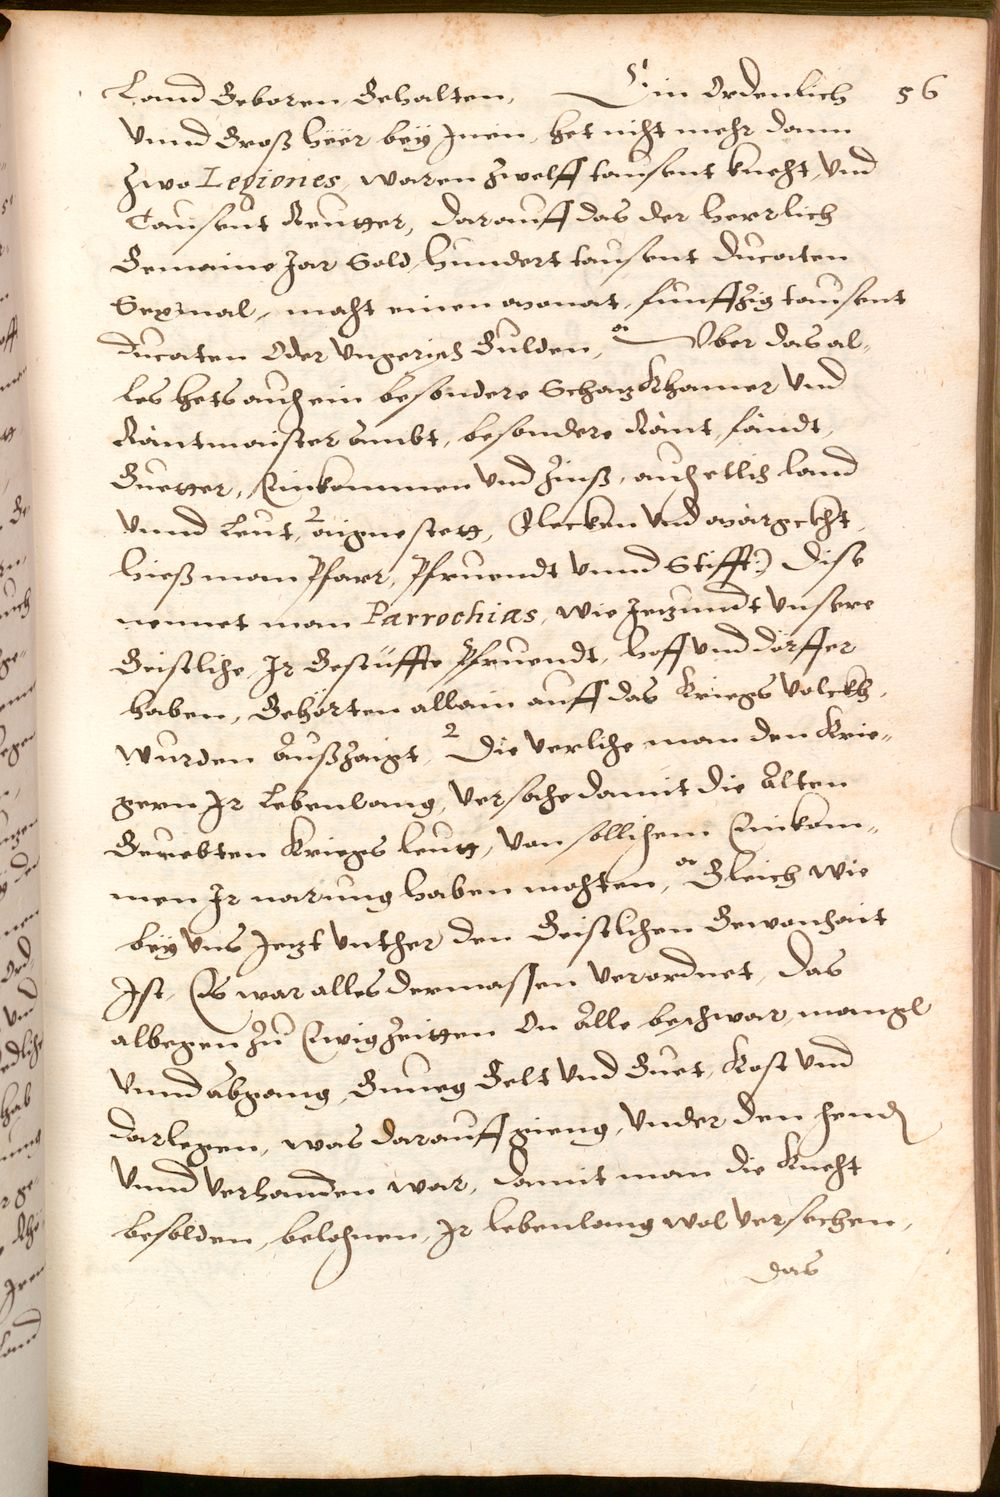 Land Geboren Gehalten, Ein Ordenlich 56
Unnd Groß Heer bey Jnen, het nicht mehr dann
Zwo Legiones, waren Zwelff tausent knecht, Und
Tausent Reutter, darauff das der herrlich
Gemaine Jar Sold, hundert tausent Ducaten
Sexmal, macht einen monat, funffzig tausent
Ducaten Oder Ungerisch Gulden, Uber das al-
les hets auch ein besondere Schatz Khamer Und
Räntmaister ämbt, besondere Ränt, ländt,
Guetter, Einkommen Und Zinß, auch etlich land
Unnd Leut, aigne stett, Flecken Und märgckht,
hieß man Pfarr, Pfruendt Unnd Stifft) Dise
nennet man Parrochias, wie Jetzundt Unsere
Geistliche, Jr Gestüffte Pfruendt, hoff Und dörffer
haben, Gehörten allain auff das Kriegs Volckh,
wurden Außzaigt, 2 Die Verliche man den Krie-
gern Jr Lebenlang, Versache damit die Alten
Geuebten Kriegs leutt, Von sollichem Einkom-
men Jr narung haben mochten, Gleich wie
bey Uns Jetzt Unther den Geistlichen Gewonhait
Jst, Es war alles dermassen Verordnet, das
albegen Zu Ewig Zeitten On Alle beschwar, mangl
Unnd abgang, Gnueg Gelt Und Guet, Kost Und
darlegen, was darauff gieng, Under den hend
Unnd Verhanden war, damit man die Knecht
besolden, belohnen, Jr lebenlang wol Versechen,
das